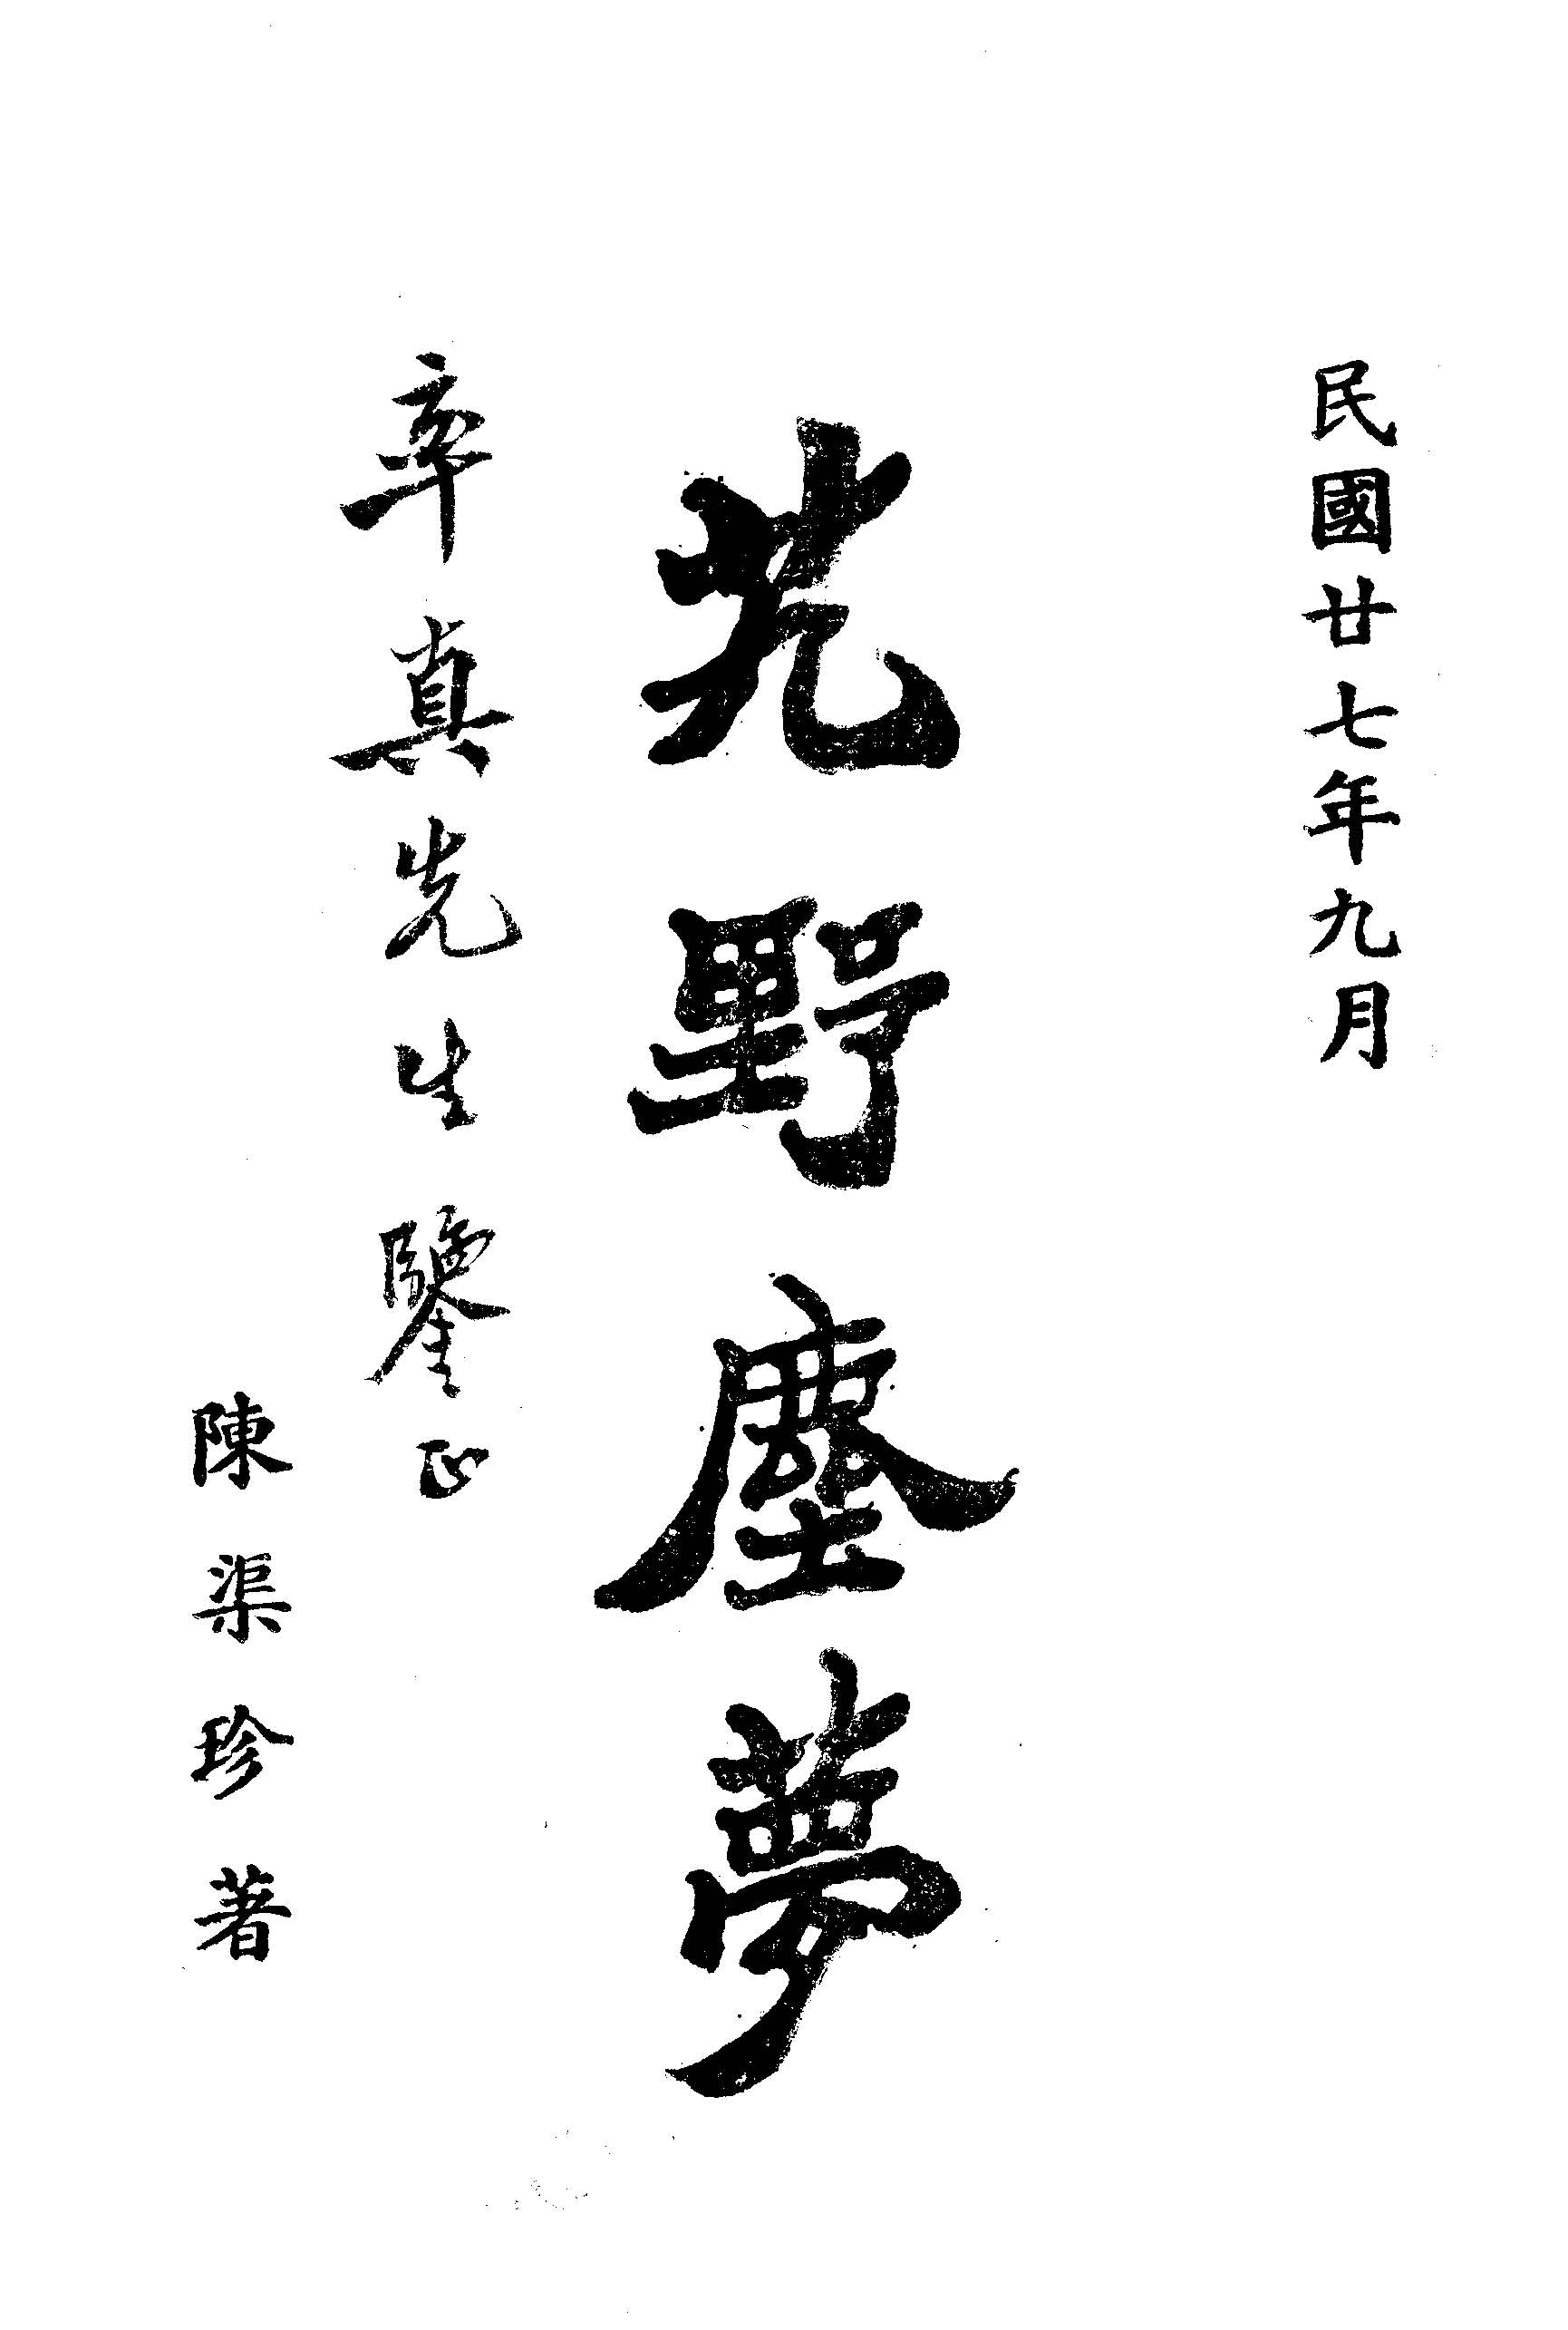 民國廿七年九月
艽野塵夢
率真先生鑒正
陳渠珍著